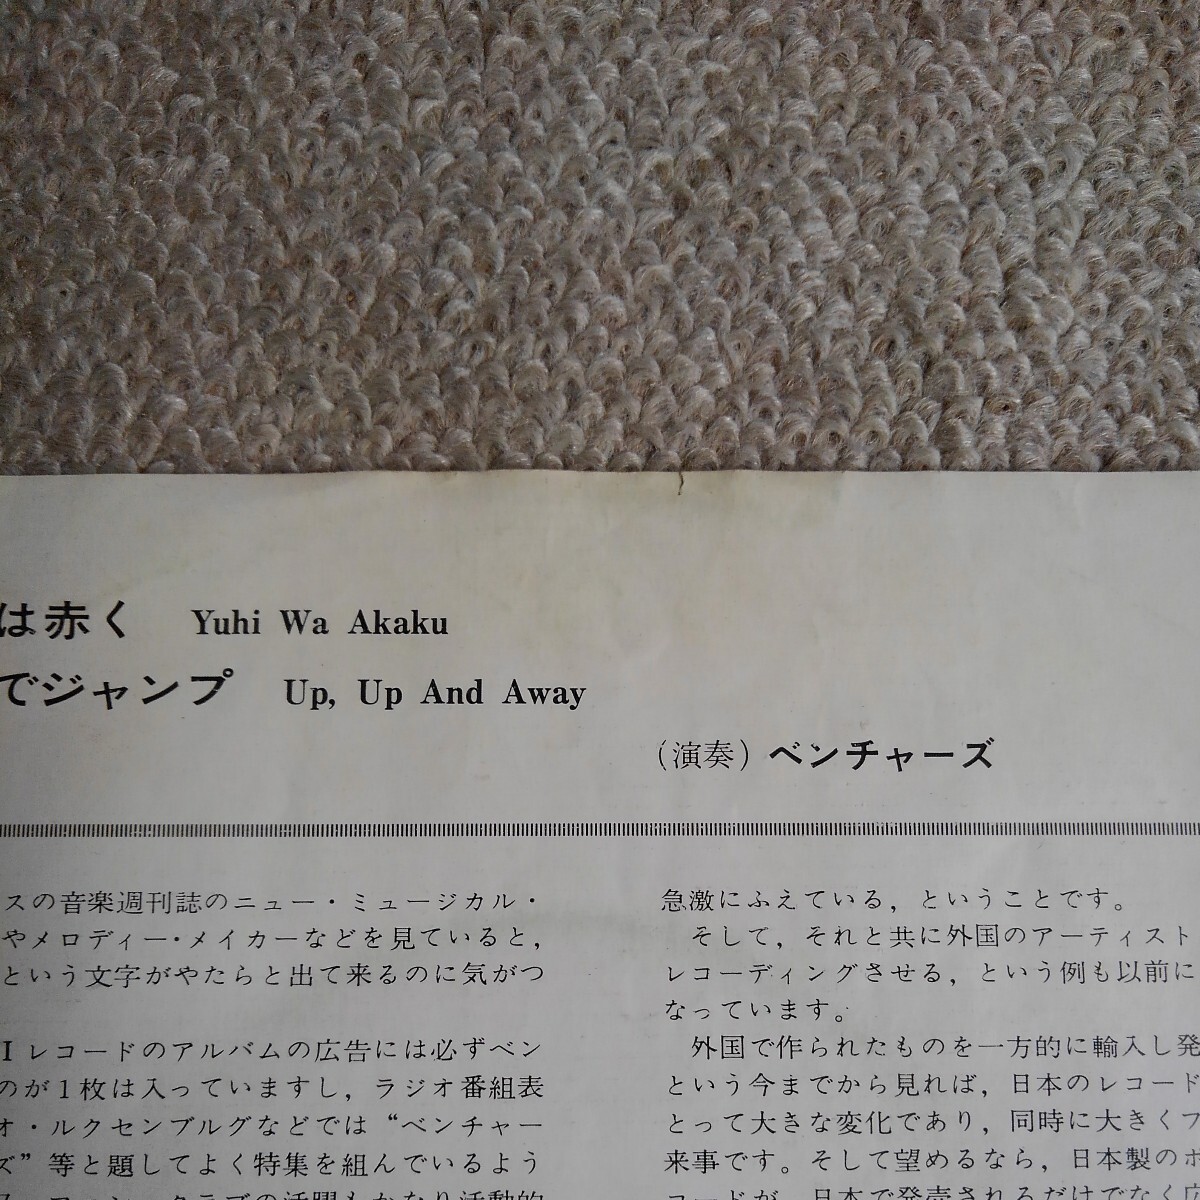 は赤く Yuhi Wa Akaku
でジャンプ Up, Up And Away
（演奏）ベンチャーズ
スの音楽週刊誌のニュー・ミュージカル・
やメロディー・メイカーなどを見ていると，
という文字がやたらと出て来るのに気がつ
Iレコードのアルバムの広告には必ずベン
のが1枚は入っていますし，ラジオ番組表
オ・ルクセンブルグなどでは“ベンチャー
ズ”等と題してよく特集を組んでいるよう
急激にふえている，ということです。
そして，それと共に外国のアーティスト
レコーディングさせる，という例も以前に
なっています。
外国で作られたものを一方的に輸入し発
という今までから見れば，日本のレコード
とって大きな変化であり，同時に大きくプ
来事です。そして望めるなら，日本製のポ
コードが，日本で発売されるだけでなく広